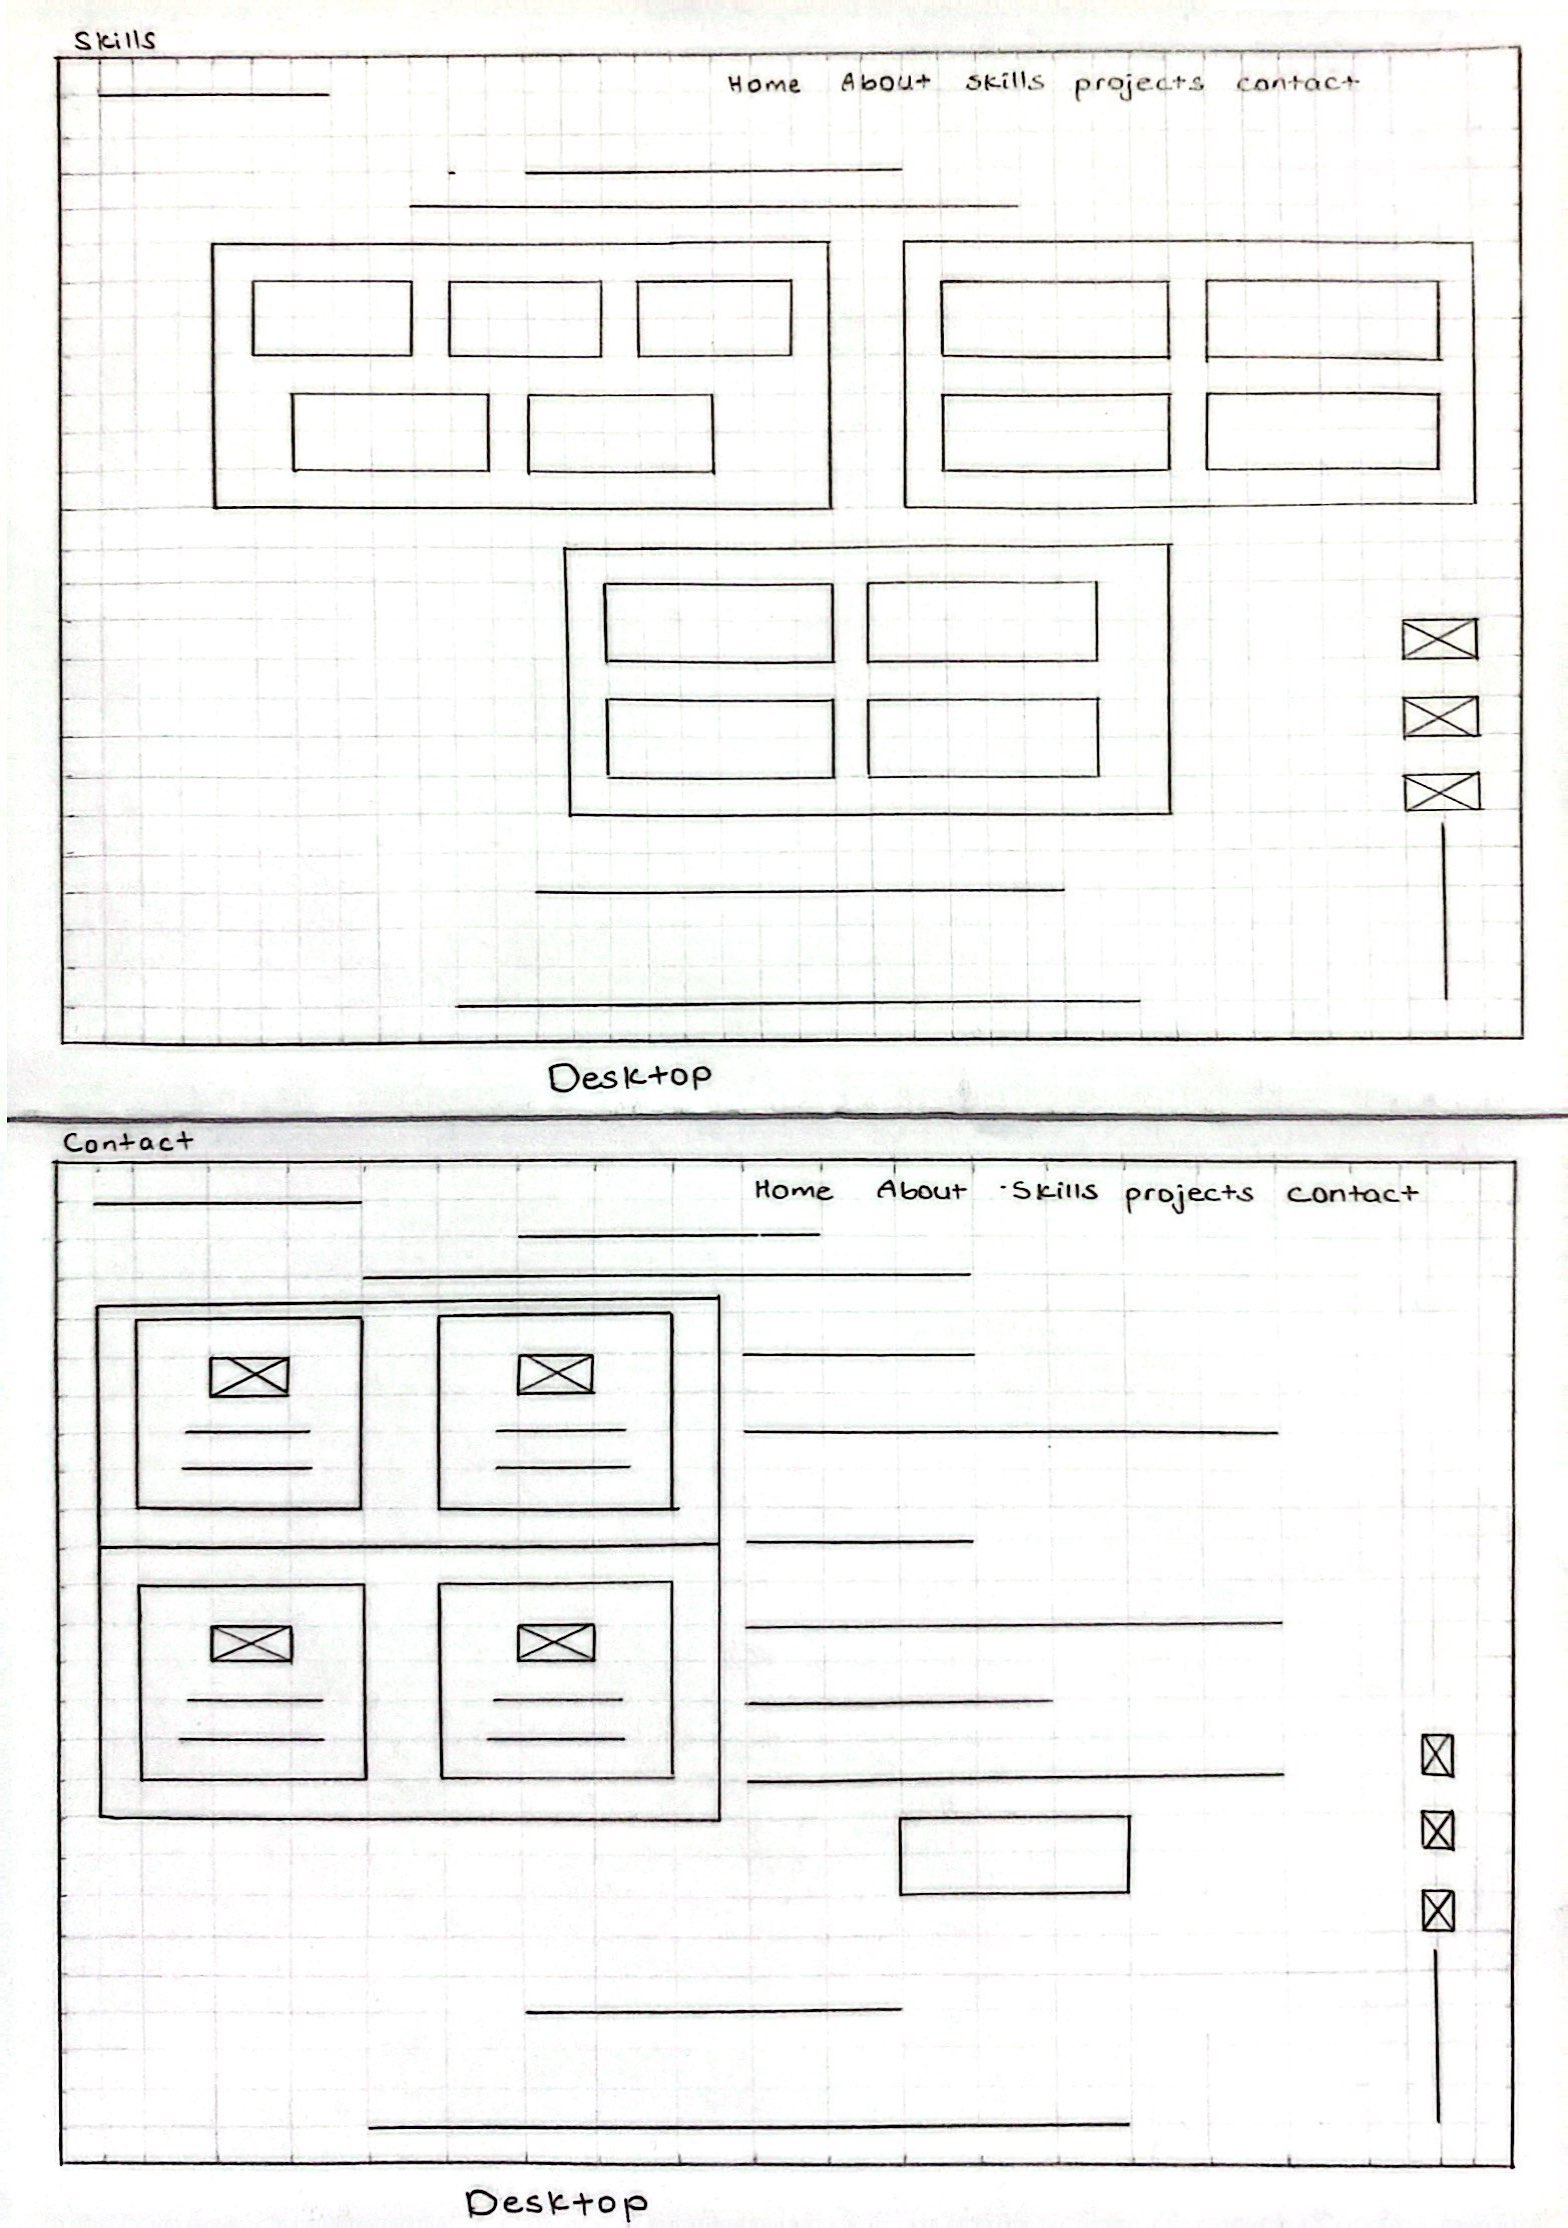 Skills
Home About skills projects contact
Desktop
Contact
Home About Skills projects contact
Desktop